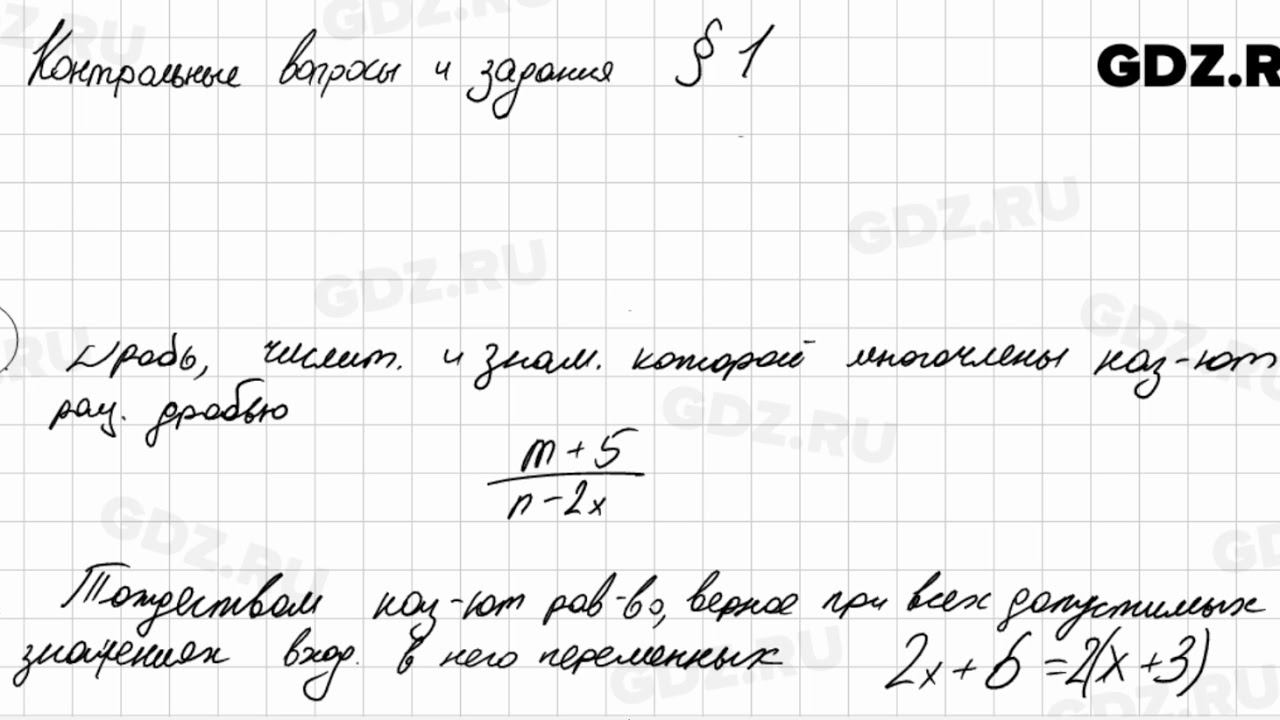 Контрольные вопросы и задания § 1
GDZ.R
GDZ.RU
GDZ.RU
GDZ.RU
GDZ.RU
Дробь, числит. и знам. которой многочлены наз-ют
рац. дробью
m + 5
n - 2x
GDZ.RU
GDZ.RU
Тождеством наз-ют рав-во, верное при всех допустимых
значениях вход. в него переменных 2x + 6 = 2(x + 3)
GDZ.RU